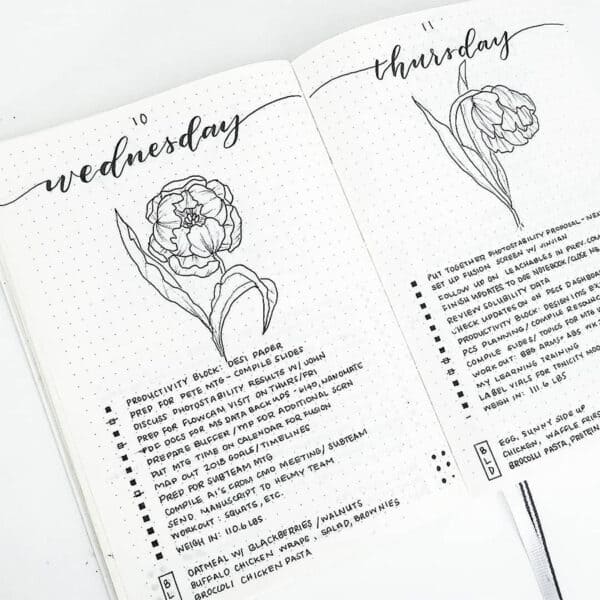 10
wednesday
PRODUCTIVITY BLOCK: DESI PAPER
PREP FOR PETE MTG - COMPILE SLIDES
DISCUSS PHOTOSTABILITY RESULTS W/ JOHN
PREP FOR FLOWCAM VISIT ON THURS/FRI
PDF DOCS FOR MS DATA BACKUPS - 6140, NANOMATE
PREPARE BUFFER/ FOR ADDITIONAL SCRN
PUT MTG TIME ON CALENDAR FOR FUSION
MAP OUT 2018 GOALS/TIMELINES
PREP FOR SUBTEAM MTG
COMPILE AI'S FROM CMO MEETING/ SUBTEAM
SEND MANUSCRIPT TO HELMY TEAM
WORKOUT: SQUATS, ETC.
WEIGH IN: 110.6 LBS
B
L
OATMEAL W/ BLACKBERRIES /WALNUTS
BUFFALO CHICKEN WRAPS, SALAD, BROWNIES
BROCCOLI CHICKEN PASTA
11
thursday
PUT TOGETHER PHOTOSTABILITY PROPOSAL - NEX
SET UP FUSION SCREEN W/ VIVIAN
FOLLOW UP ON LEACHABLES IN PREV. COM
FINISH UPDATES TO DOE NOTEBOOK/CLOSE
REVIEW SOLUBILITY DATA
CHECK UPDATES ON PSCS DASHBOA
PRODUCTIVITY BLOCK: DESIGN IMS EX
PCS PLANNING/ COMPILE RESOURC
COMPILE SLIDES/ TOPICS FOR MTG W
WORKOUT: BBG ARMS+ ABS WK
MY LEARNING TRAINING
LABEL VIALS FOR TONICITY MOD
WEIGH IN: 111.6 LBS
B
L
D
EGG, SUNNY SIDE UP
CHICKEN, WAFFLE FRIES
BROCOLLI PASTA, PROTEIN